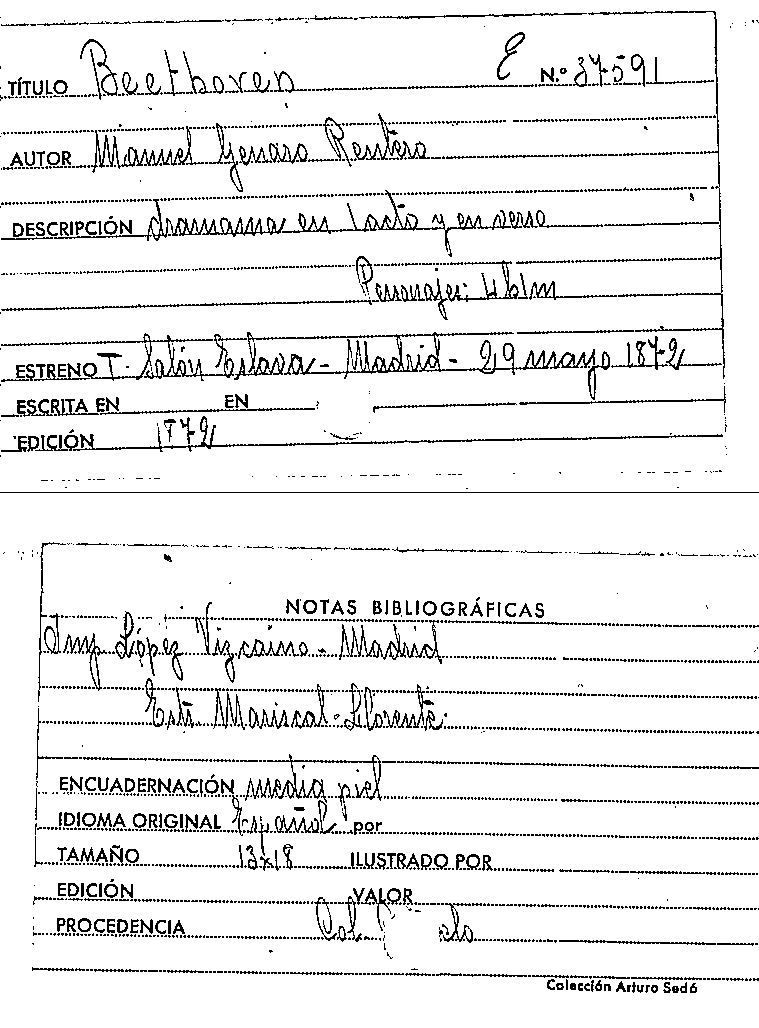 TÍTULO Beethoven E N.º 37591
AUTOR Manuel Genaro Rentero
DESCRIPCIÓN dramama en 1 acto y en verso
Personajes: 4 h 1 m
ESTRENO T. Salón Eslava - Madrid - 29 mayo 1872
ESCRITA EN EN
EDICIÓN 1872
NOTAS BIBLIOGRÁFICAS
Imp López Vizcaino - Madrid
Estr. Mariscal - Llorente.
ENCUADERNACIÓN media piel
IDIOMA ORIGINAL Español por
TAMAÑO 13x18 ILUSTRADO POR
EDICIÓN VALOR
PROCEDENCIA Col.
Colección Arturo Sedó